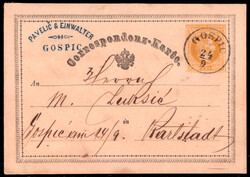 PAVELIĆ & EINWALTER
GOSPIĆ
GOSPIĆ
24
9
Correspondenz-Karte.
An
Herrn
M. Luksić
Gospić am 24/9. Karlstadt